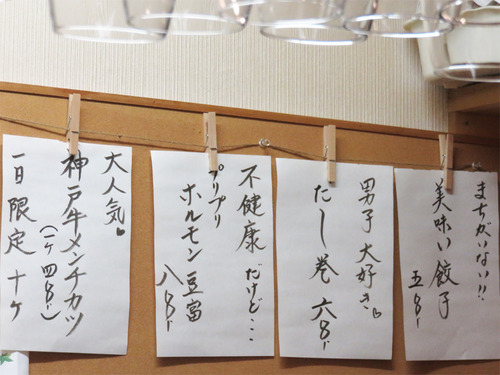 まちがいない!!
美味い餃子
五8!-
男子大好き♡
だし巻 六8!-
不健康だけど…
プリプリ
ホルモン豆富
八8!-
大人気♥
神戸牛メンチカツ
(一ケ四8!-)
一日限定十ケ